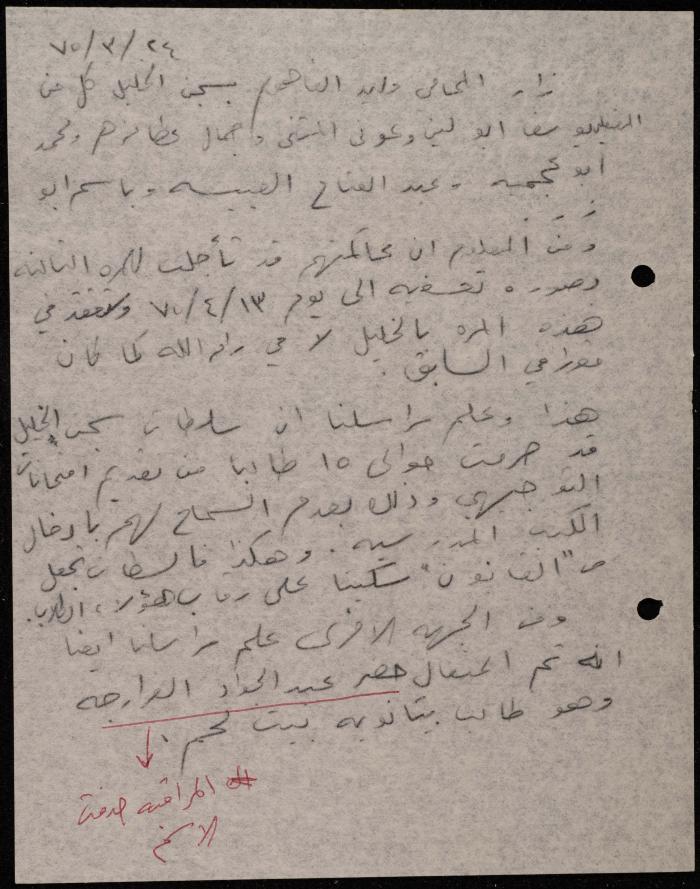 ٧٥/٣/٢٤
زار المحامي وليد الفاهوم بسجن الخليل كل من
أبو لبن وعوني وجمال ومحمد
أبو عجمية وعبد الفتاح وباسم ابو
ومن المعلوم ان محاكمتهم قد تأجلت للمره الثالثه
وبصوره تعسفيه الى يوم ٧٥/٤/١٣ وستعقد في
هذه المره بالخليل لا في رام الله كما كان
مقررا في السابق .
هذا وعلم مراسلنا ان سلطات سجن الخليل
قد حرمت حوالي ١٥ طالبا من تقديم امتحانات
التوجيهي وذلك بعدم السماح لهم بادخال
الكتب المدرسيه . وهكذا فالسلطات تجعل
من "القانون" سكينا على رقاب هؤلاء الطلاب .
ومن الجهه الاخرى علم مراسلنا ايضا
انه تم اعتقال خضر عبد الجواد
وهو طالب بثانوية بيت لحم .
المراقبه حذفت
الاسم